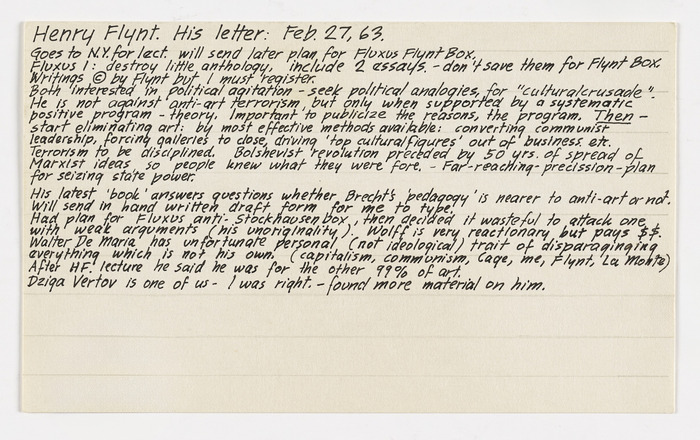 Henry Flynt. His letter: Feb. 27, 63.
Goes to N.Y. for lect. will send later plan for Fluxus Flynt Box.
Fluxus 1: destroy little anthology, include 2 essays. - don't save them for Flynt Box.
Writings © by Flynt but I must register.
Both interested in political agitation - seek political analogies, for "cultural crusade".
He is not against anti-art terrorism, but only when supported by a systematic
positive program - theory. Important to publicize the reasons, the program. Then -
start eliminating art: by most effective methods available: converting communist
leadership, forcing galleries to close, driving 'top cultural figures' out of business. etc.
Terrorism to be disciplined. Bolshevist revolution preceded by 50 yrs. of spread of
Marxist ideas so people knew what they were fore. - Far-reaching-precission-plan
for seizing state power.
His latest 'book' answers questions whether Brecht's 'pedagogy' is nearer to anti-art or not.
Will send in hand written draft form for me to type.
Had plan for Fluxus anti-Stockhausen box, then decided it wasteful to attack one
with weak arguments (his unoriginality). Wolff is very reactionary but pays $$.
Walter De Maria has unfortunate personal (not ideological) trait of disparaginging
everything which is not his own. (capitalism, communism, Cage, me, Flynt, La Monte)
After HF. lecture he said he was for the other 99% of art.
Dziga Vertov is one of us - I was right. - found more material on him.